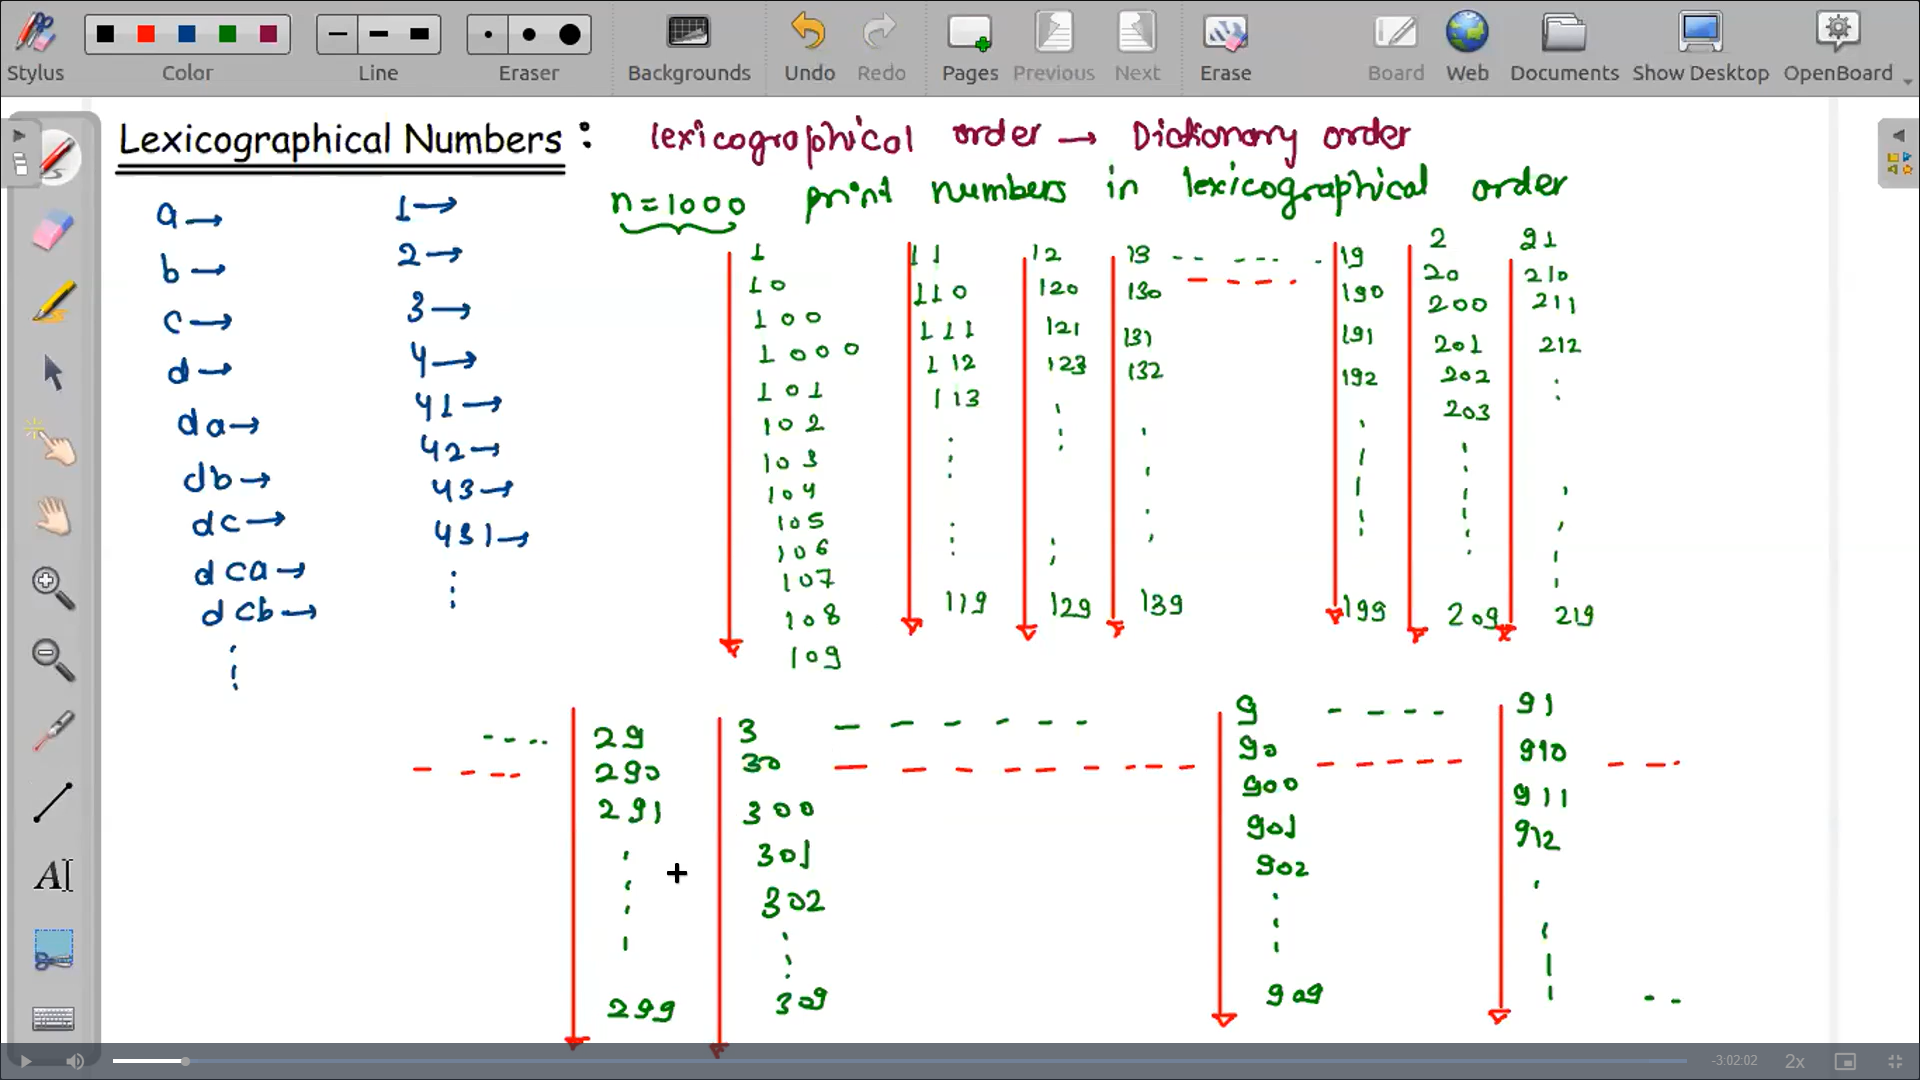 Stylus Color Line Eraser Backgrounds Undo Redo Pages Previous Next Erase Board Web Documents Show Desktop OpenBoard
Lexicographical Numbers : lexicographical order → Dictionary order
n = 1000 print numbers in lexicographical order
a →
b →
c →
d →
da →
db →
dc →
dca →
dcb →
1 →
2 →
3 →
4 →
41 →
42 →
43 →
431 →
1
10
100
1000
101
102
103
104
105
106
107
108
109
11
110
111
112
113
119
12
120
121
123
129
13
130
131
132
139
19
190
191
192
199
2
20
200
201
202
203
209
21
210
211
212
219
29
290
291
299
3
30
300
301
302
309
9
90
900
901
902
909
91
910
911
912
-3:02:02 2x